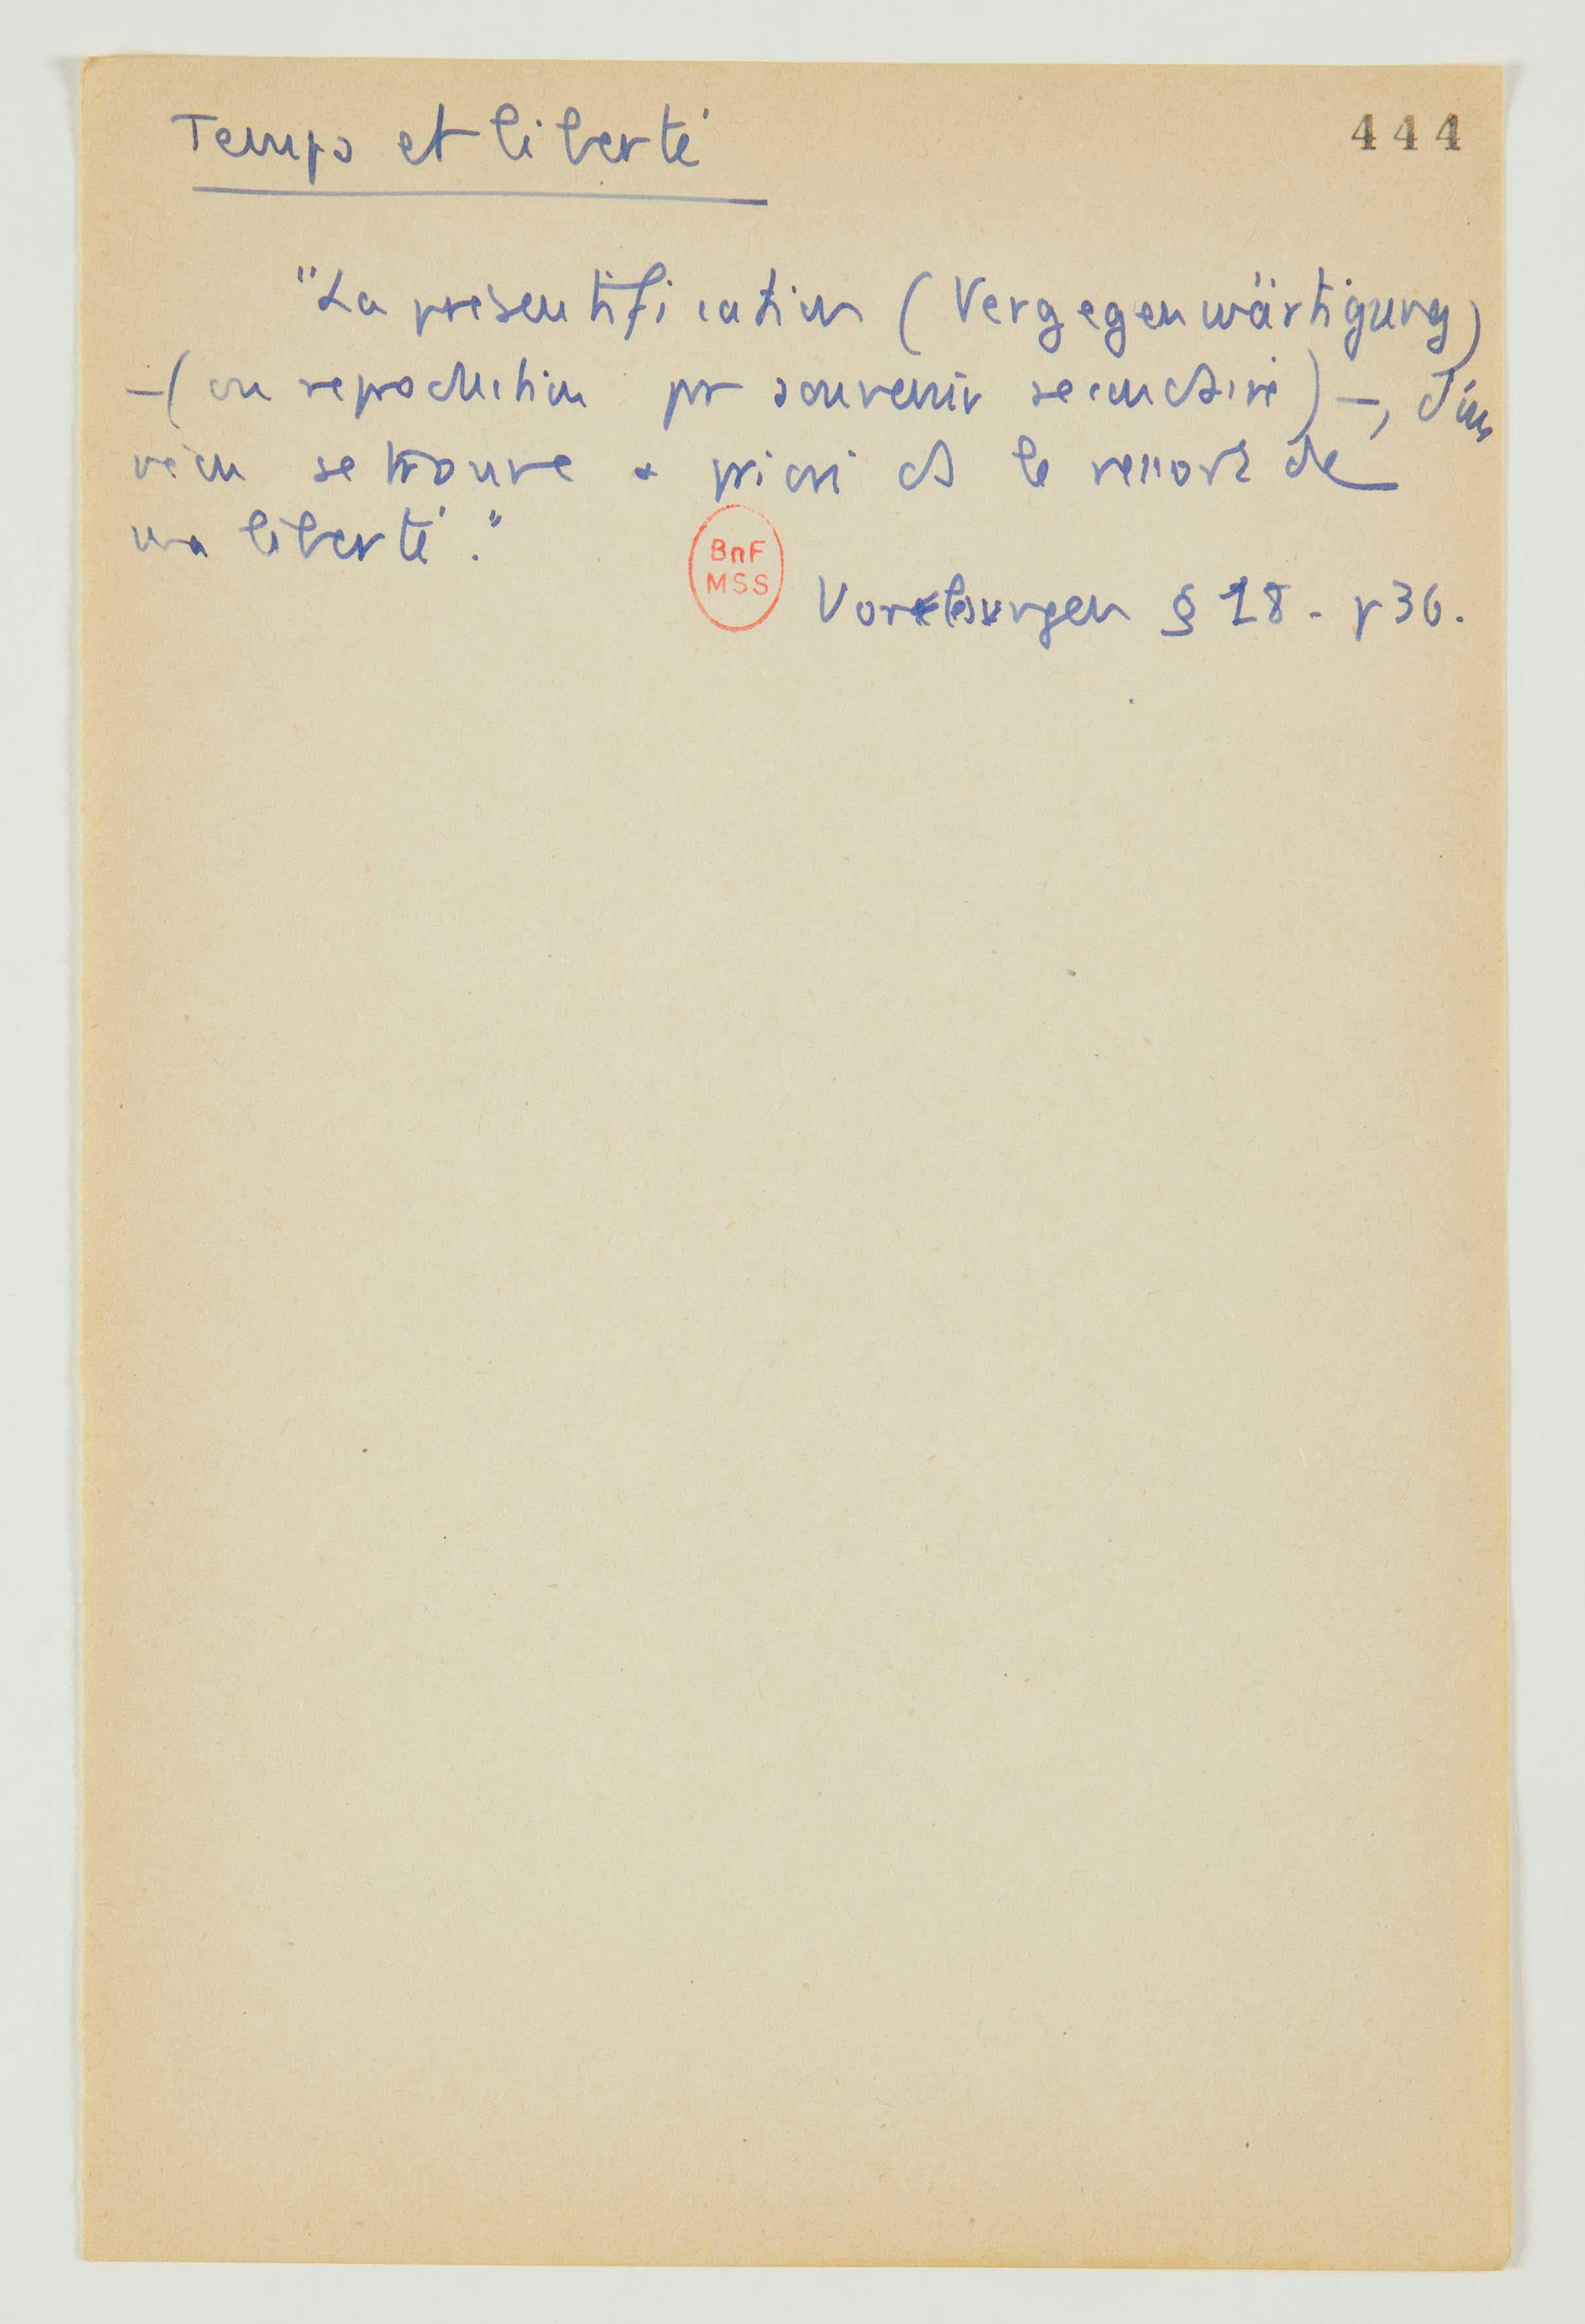 Temps et liberté
444
"La présentification (Vergegenwärtigung)
– (ou reproduction pr souvenir secondaire) –, d'un
vécu se trouve a priori ds le ressort de
ma liberté."
BnF
MSS
Vorlesungen § 18 - p 36.